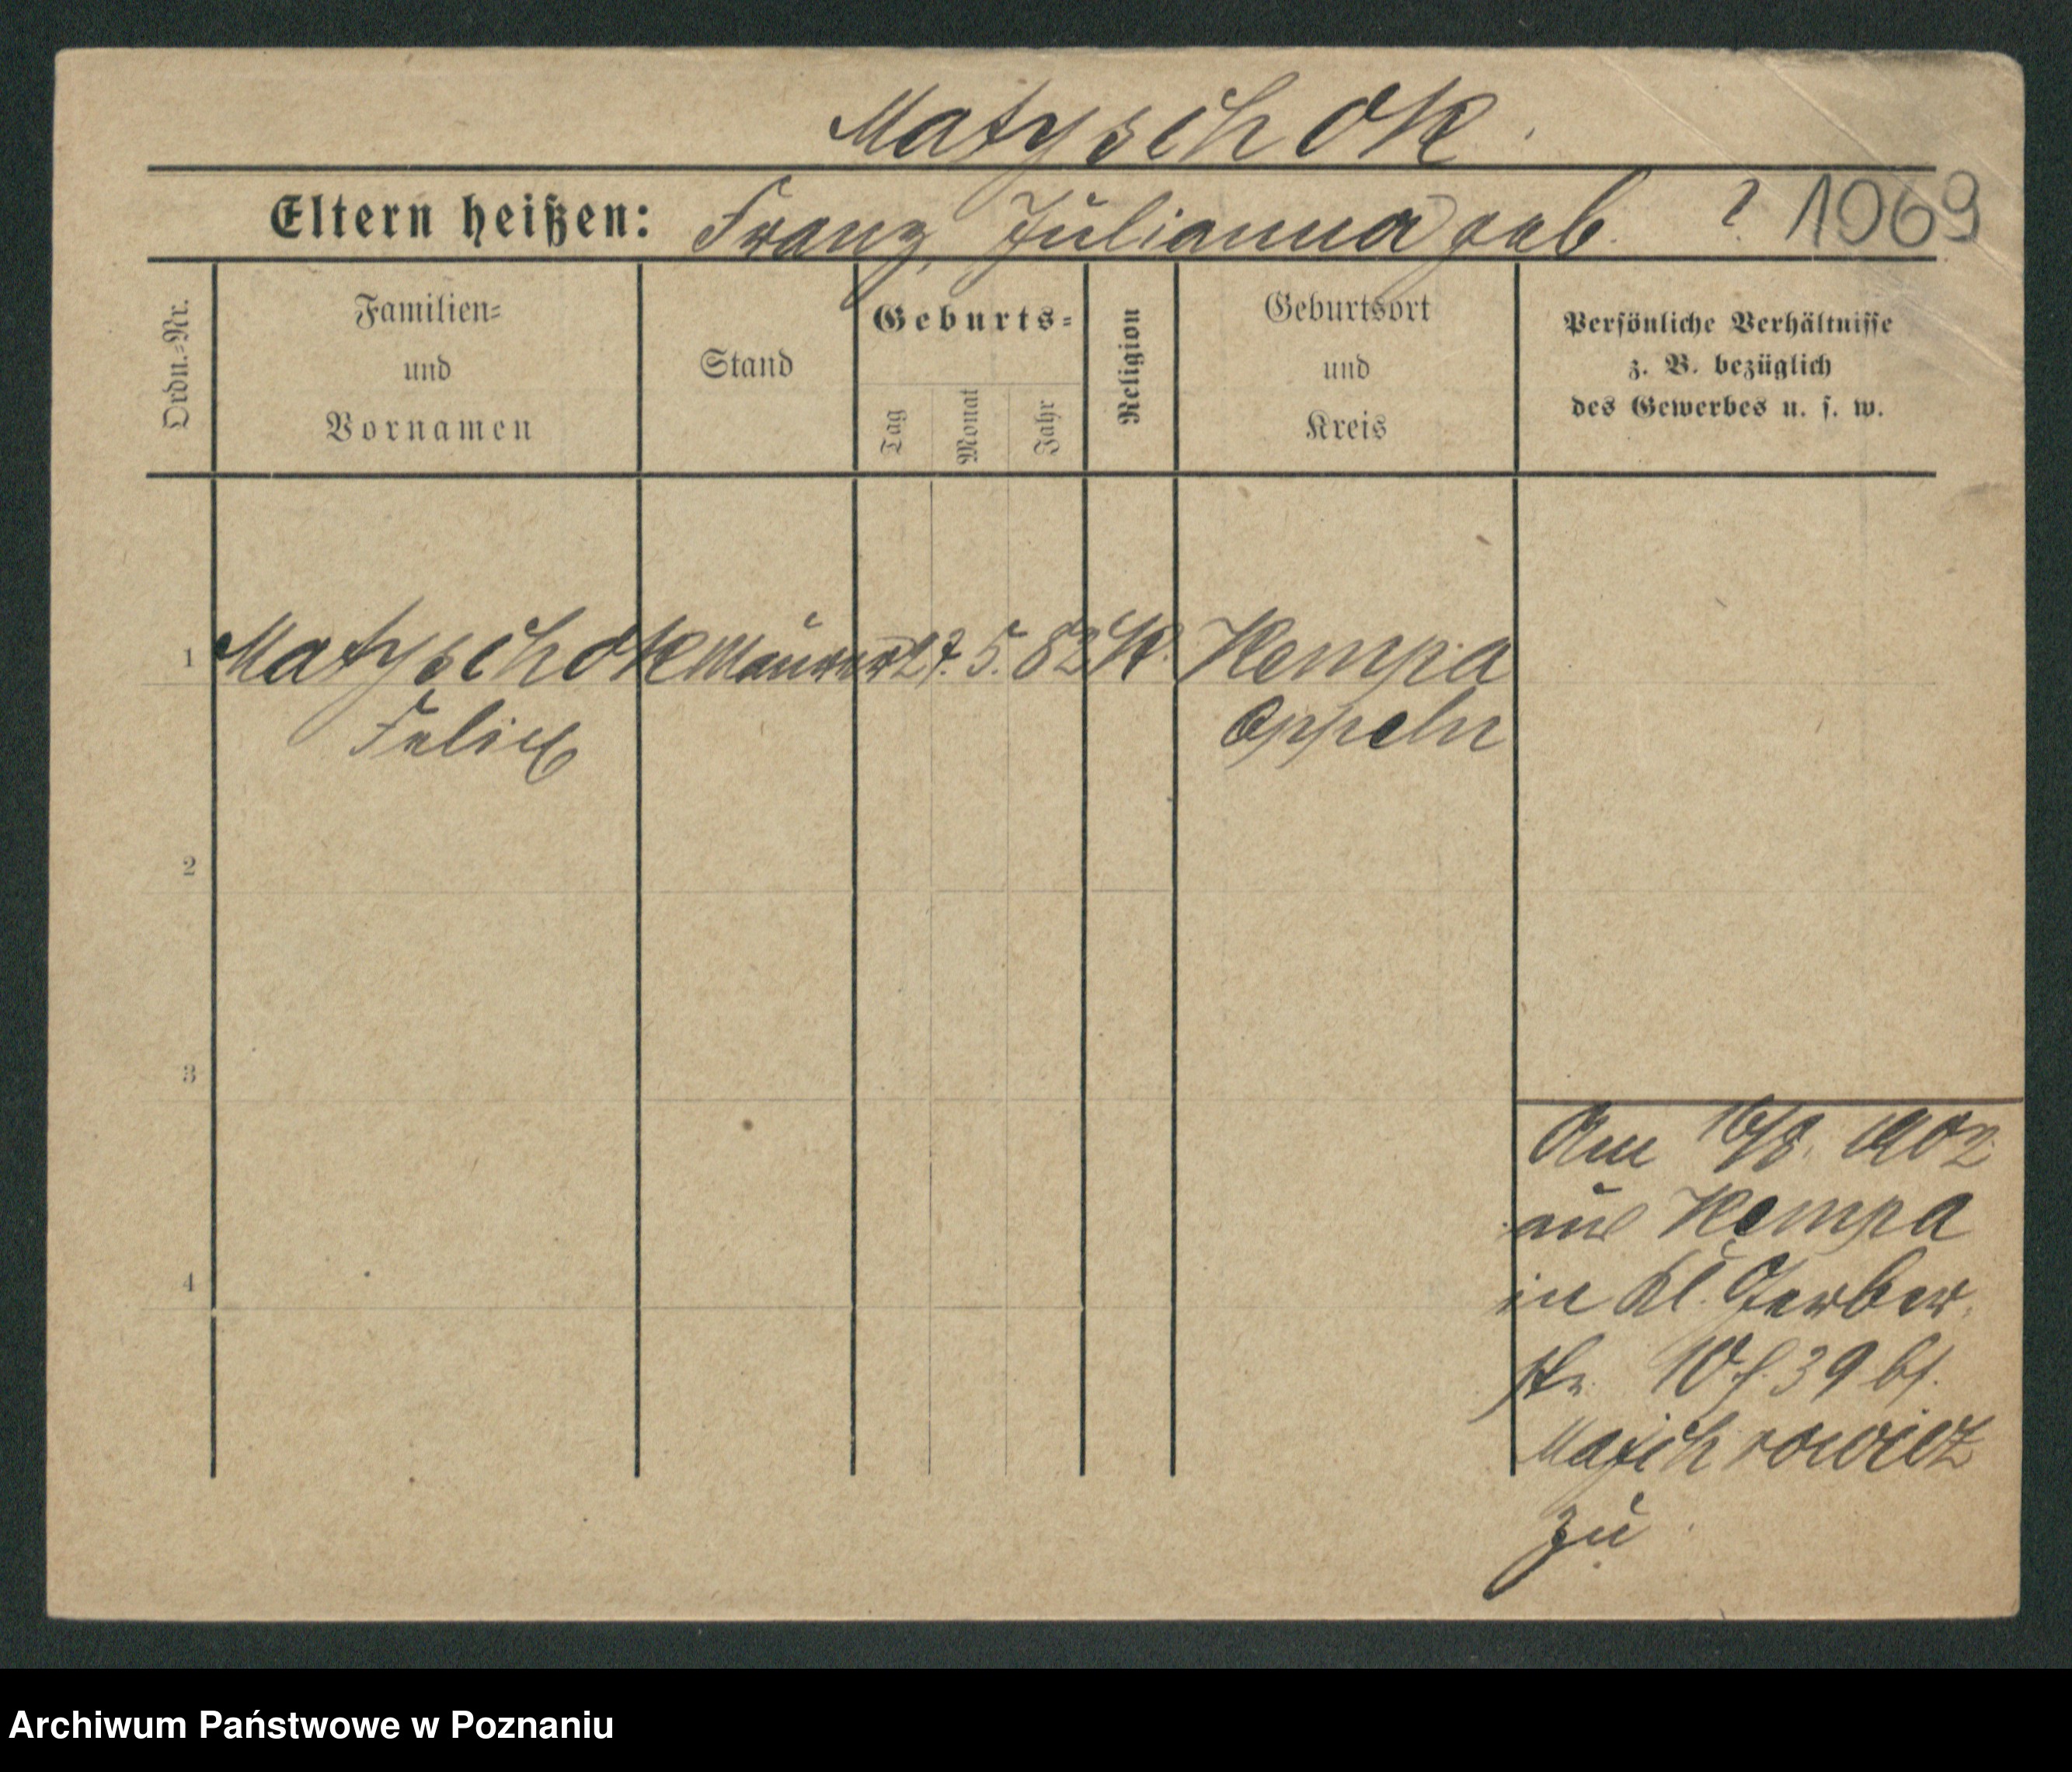 Matyschok.
Eltern heißen: Franz, Julianna geb. ? 1069
Ordn.=Nr.
Familien=
und
Vornamen
Stand
Geburts=
Tag
Monat
Jahr
Religion
Geburtsort
und
Kreis
Persönliche Verhältnisse
z. B. bezüglich
des Gewerbes u. s. w.
1 Matyschok Maurer 27. 5. 82 K. Kempa
Felix Oppeln
2
3
4
Am 16/8. 1902
aus Kempa
in Kl. Gerber
str. 10 39 bh.
zu
Archiwum Państwowe w Poznaniu